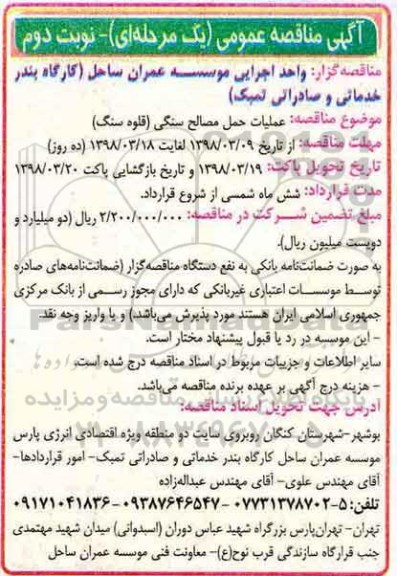 آگهی مناقصه عمومی (یک مرحله‌ای)- نوبت دوم
مناقصه‌گزار: واحد اجرایی موسسه عمران ساحل (کارگاه بندر
خدماتی و صادراتی تمبک)
موضوع مناقصه: عملیات حمل مصالح سنگی (قلوه سنگ)
مهلت مناقصه: از تاریخ ۱۳۹۸/۰۳/۰۹ لغایت ۱۳۹۸/۰۳/۱۸ (ده روز)
تاریخ تحویل پاکت: ۱۳۹۸/۰۳/۱۹ و تاریخ بازگشایی پاکت ۱۳۹۸/۰۳/۲۰
مدت قرارداد: شش ماه شمسی از شروع قرارداد.
مبلغ تضمین شرکت در مناقصه: ۲/۲۰۰/۰۰۰/۰۰۰ ریال (دو میلیارد و
دویست میلیون ریال).
به صورت ضمانت‌نامه بانکی به نفع دستگاه مناقصه‌گزار (ضمانت‌نامه‌های صادره
توسط موسسات اعتباری غیربانکی که دارای مجوز رسمی از بانک مرکزی
جمهوری اسلامی ایران هستند مورد پذیرش می‌باشد) و یا واریز وجه نقد.
- این موسسه در رد یا قبول پیشنهاد مختار است.
سایر اطلاعات و جزییات مربوط در اسناد مناقصه درج شده است.
- هزینه درج آگهی بر عهده برنده مناقصه می‌باشد.
آدرس جهت تحویل اسناد مناقصه:
بوشهر-شهرستان کنگان روبروی سایت دو منطقه ویژه اقتصادی انرژی پارس
موسسه عمران ساحل کارگاه بندر خدماتی و صادراتی تمبک- امور قراردادها-
آقای مهندس علوی- آقای مهندس عبداله‌زاده
تلفن: ۵-۰۷۷۳۱۳۷۸۷۰۲ -۰۹۳۸۷۶۴۶۵۴۷ -۰۹۱۷۱۰۴۱۸۳۶
تهران- تهران‌پارس بزرگراه شهید عباس دوران (اسبدوانی) میدان شهید مهتمدی
جنب قرارگاه سازندگی قرب نوح(ع)- معاونت فنی موسسه عمران ساحل